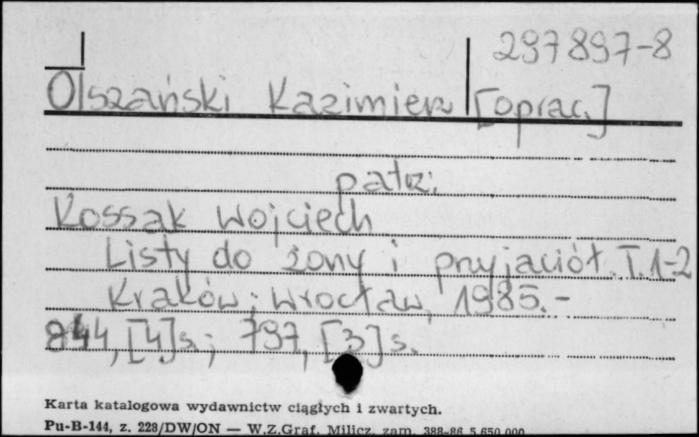 297897-8
Olszański Kazimierz [oprac.]
patrz:
Kossak Wojciech
Listy do żony i przyjaciół. T. 1-2
Kraków; Wrocław, 1985.-
844, [4] s.; 797, [3] s.
Karta katalogowa wydawnictw ciągłych i zwartych.
Pu-B-144, z. 228/DW/ON — W.Z.Graf. Milicz, zam. 388-86 5.650.000